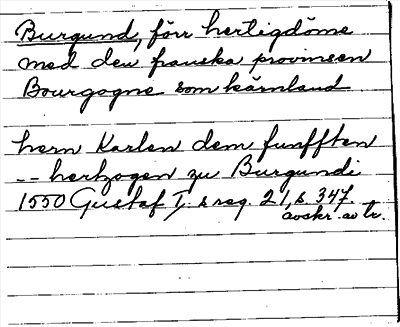 Burgund, förr hertigdöme
med den franska provinsen
Bourgogne som kärnland
hern Karlen dem funfften
-- hertzogen zu Burgundi
1550 Gustaf I:s reg. 21, s. 347.
avskr. av tr.